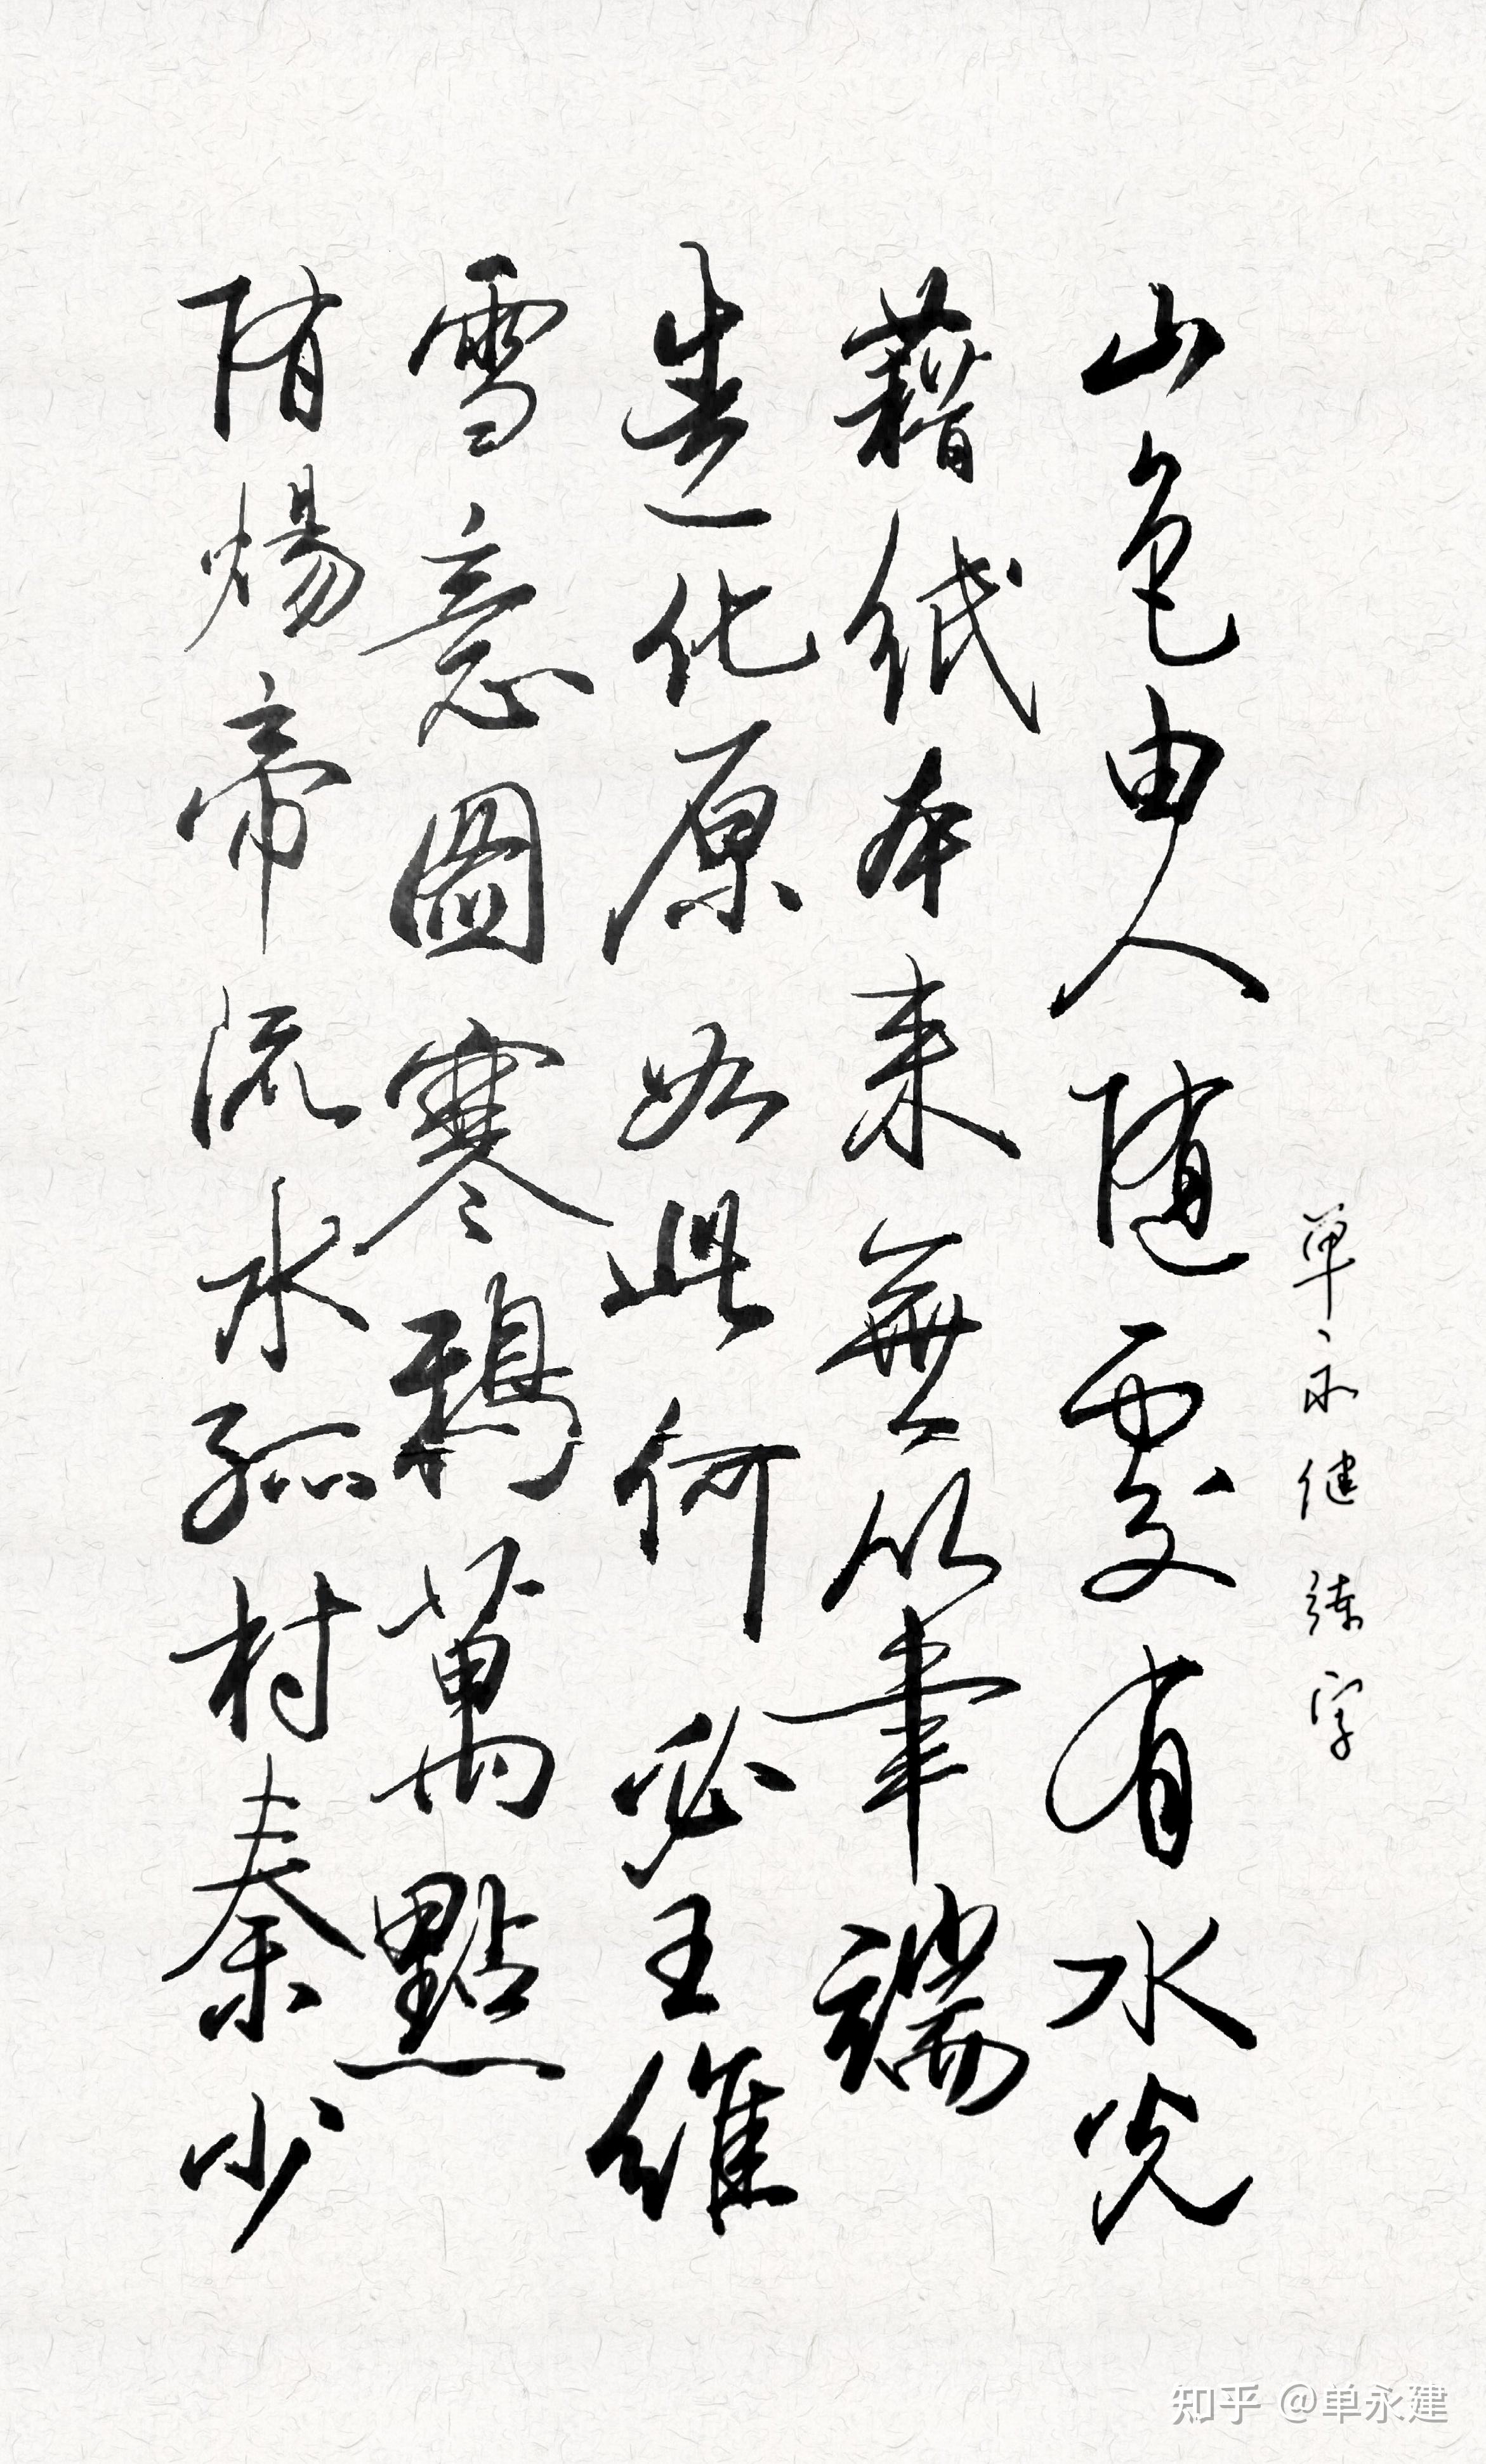 单永健练字
山色由人随處有水光
藉纸本来無以筆端
造化原如此何必王維
雪意圖寒鸦萬點
隋煬帝流水孤村秦少
知乎 @单永建